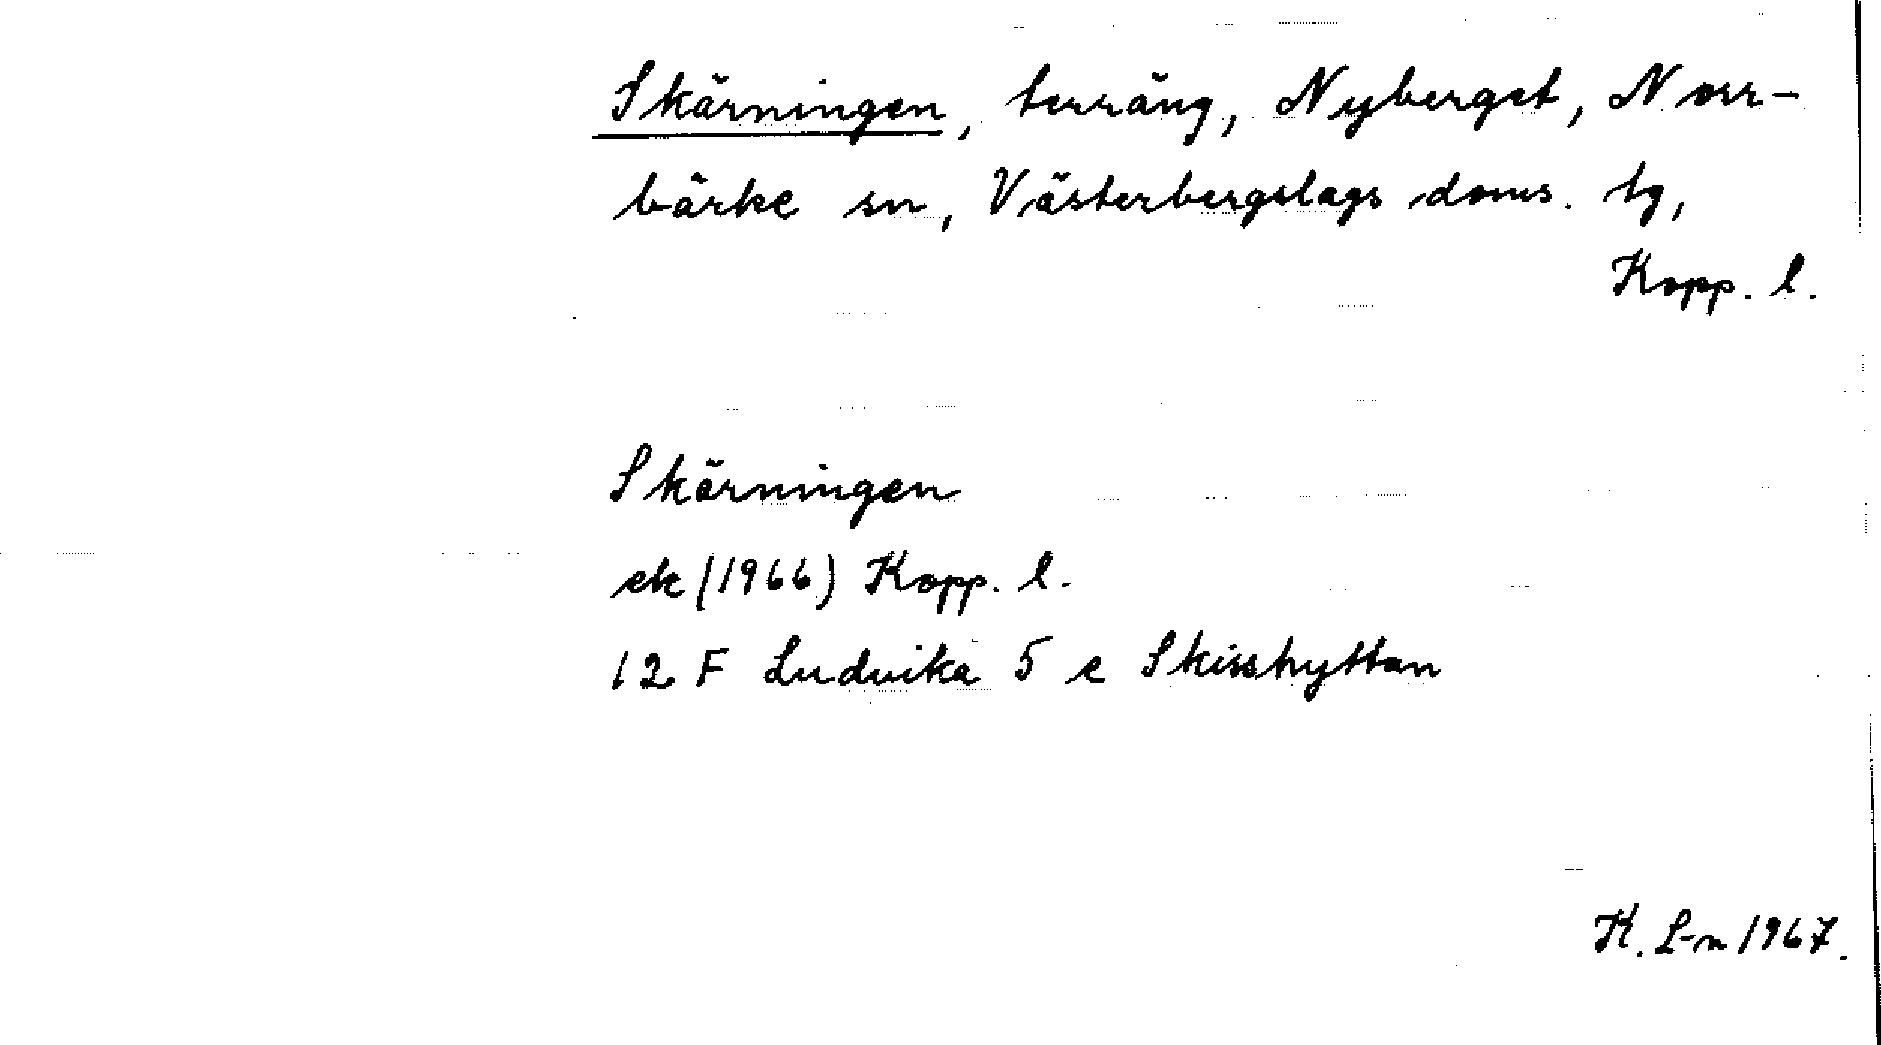 Skärningen, terräng, Nyberget, Norr-
bärke sn, Västerbergslags doms. tg,
Kopp. l.
Skärningen
ek (1966) Kopp. l.
12 F Ludvika 5 e Skisshyttan
K. L-n 1967.